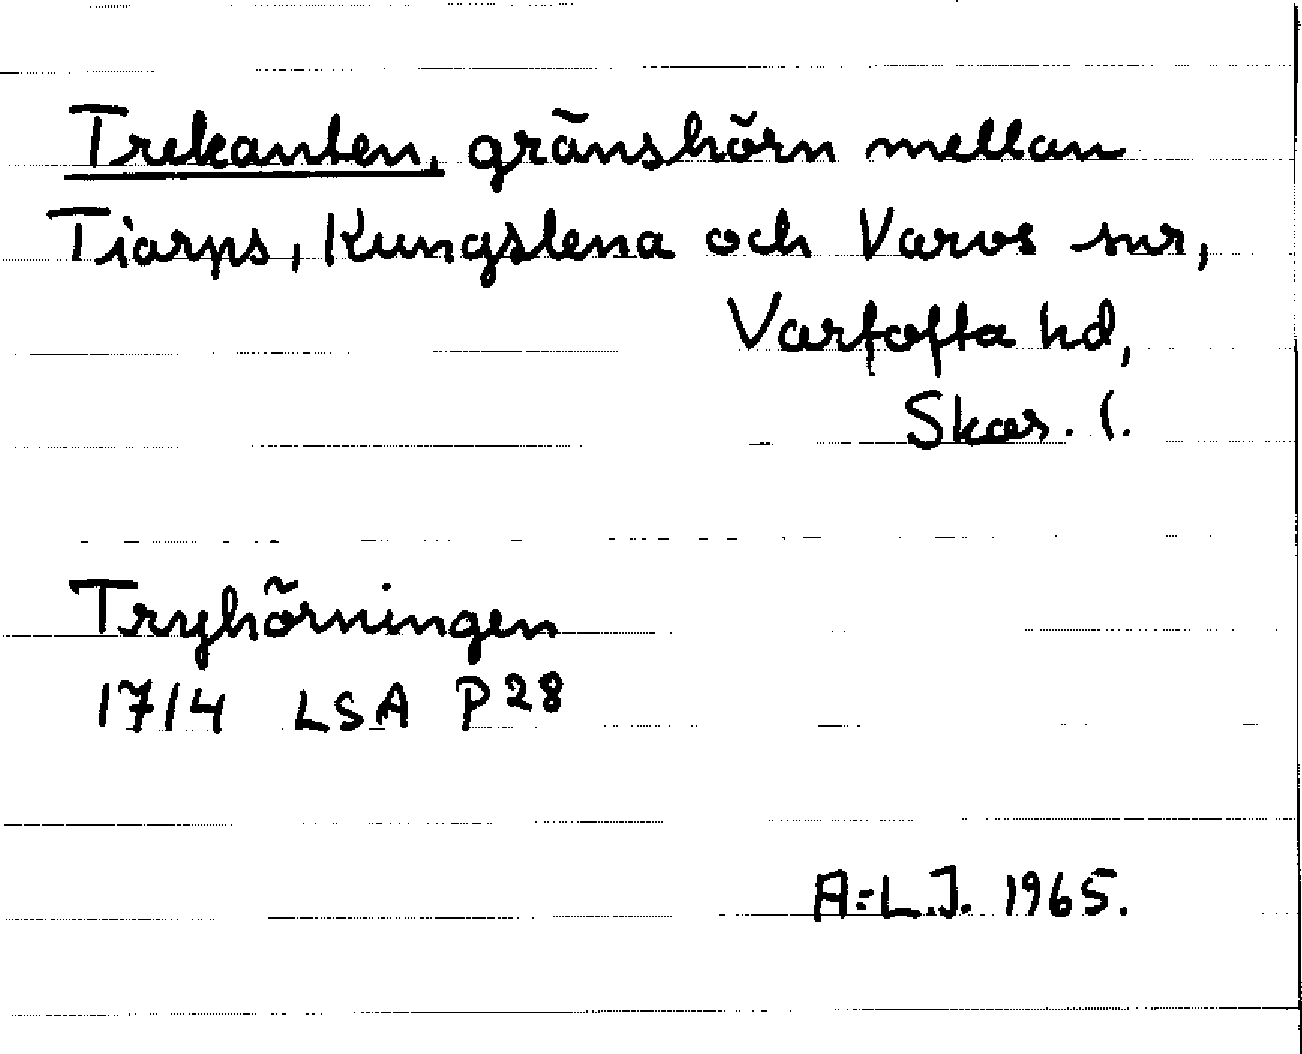 Trekanten, gränshörn mellan
Tiarps, Kungslena och Varvs snr,
Vartofta hd,
Skar. l.
Tryhörningen
1714 LSA P28
A:L.J. 1965.